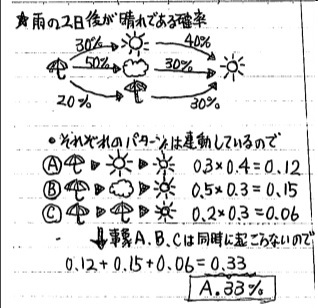 ★雨の2日後が晴れである確率
30% 40%
50% 30%
20% 30%
•それぞれのパターンは連動しているので
Ⓐ 0.3×0.4=0.12
Ⓑ 0.5×0.3=0.15
Ⓒ 0.2×0.3=0.06
事象A、B、Cは同時に起こらないので
0.12+0.15+0.06=0.33
A.33%